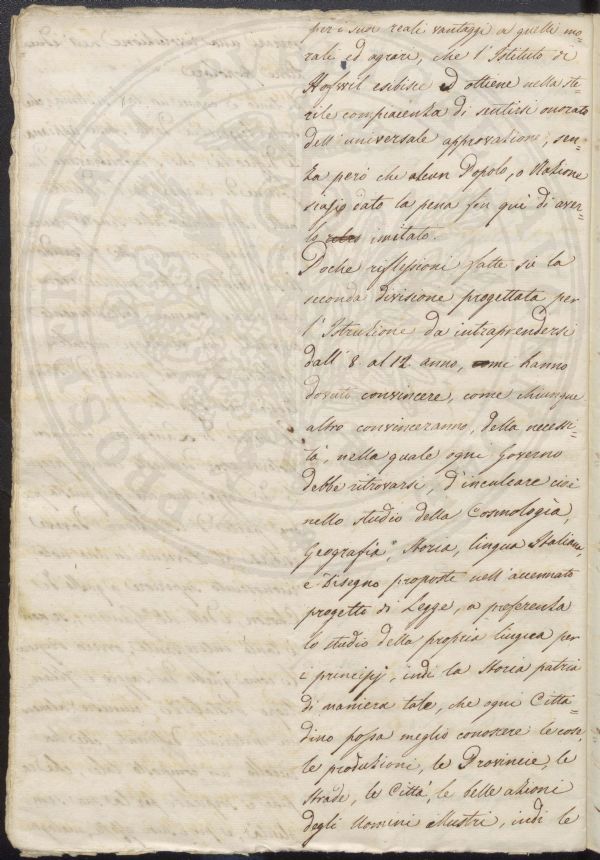 per i suoi reali vantaggi a quelli mo-
rali ed agrarj, che l'Istituto di
Hofwil esibisce ed ottiene nella ste-
rile compiacenza di sentirsi onorato
dell'universale approvazione, sen-
za però che alcun Popolo, o Nazione
siasi dato la pena fin qui di aver-
lo imitato.
Poche riflessioni fatte su la
seconda divisione progettata per
l'Istruzione da intraprendersi
dall' 8. al 12. anno, mi hanno
dovuto convincere, come chiunque
altro convinceranno, della necessi-
tà, nella quale ogni Governo
debbe ritrovarsi, d'inculcare cioè
nello studio della Cosmologia,
Geografia, Storia, lingua Italiana,
e Disegno proposte nell'accennato
progetto di Legge, a preferenza
lo studio della propria lingua per
i principj, indi la Storia patria
di maniera tale, che ogni Citta-
dino possa meglio conoscere le cose,
le produzioni, le Provincie, le
Strade, le Città, le belle azioni
degli Uomini Illustri, indi le
PROSPICIT